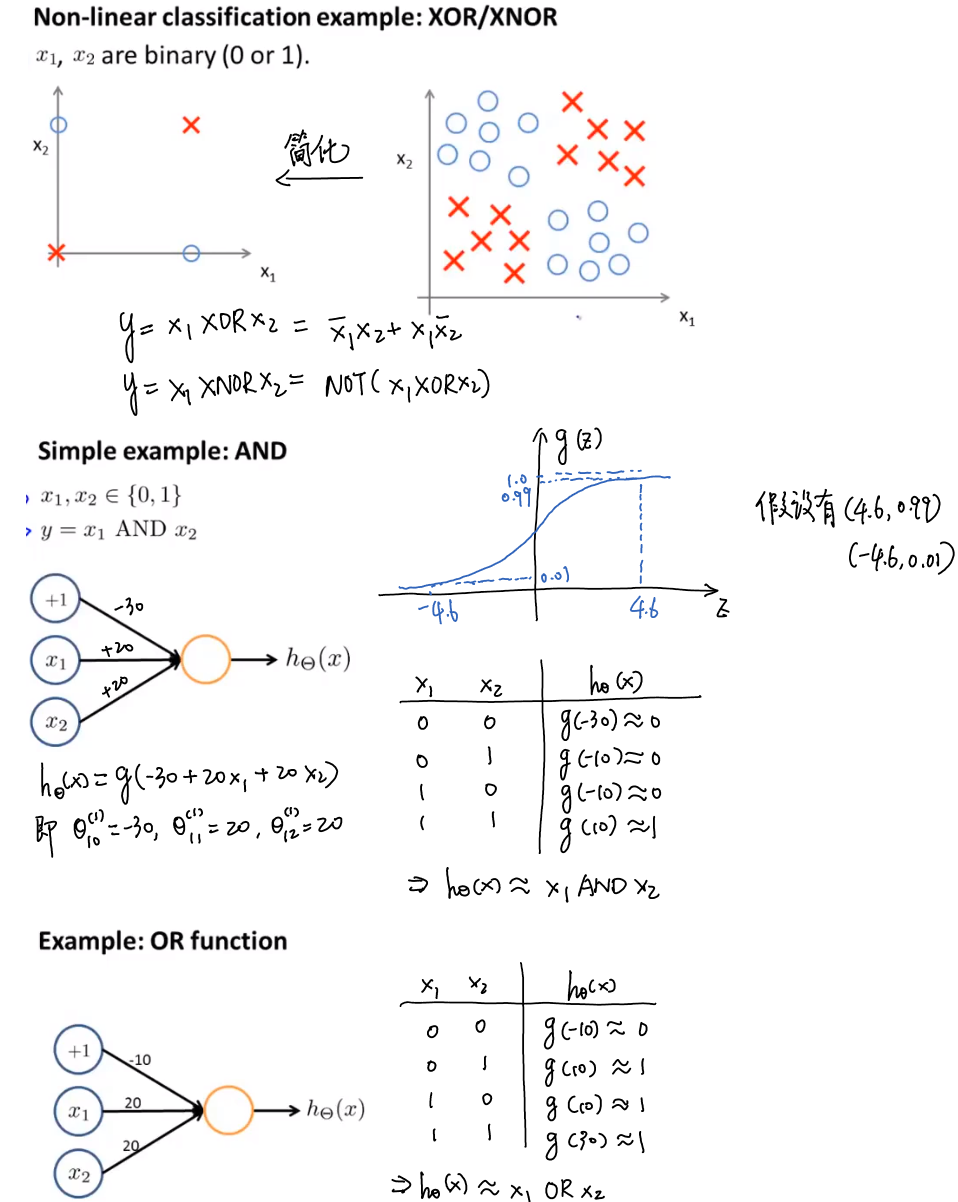 Non-linear classification example: XOR/XNOR
x₁, x₂ are binary (0 or 1).
x₂
x₁
简化
x₂
x₁
y = x₁ XOR x₂ = x̄₁x₂ + x₁x̄₂
y = x₁ XNOR x₂ = NOT(x₁XORx₂)
Simple example: AND
x₁, x₂ ∈ {0, 1}
y = x₁ AND x₂
+1
x₁
x₂
-30
+20
+20
hΘ(x)
g(z)
1.0
0.99
0.01
-4.6
4.6
z
假设有(4.6, 0.99)
(-4.6, 0.01)
hθ(x) = g(-30+20x₁+20x₂)
即 θ₁₀⁽¹⁾=-30, θ₁₁⁽¹⁾=20, θ₁₂⁽¹⁾=20
x₁ x₂ hθ(x)
0 0 g(-30)≈0
0 1 g(-10)≈0
1 0 g(-10)≈0
1 1 g(10)≈1
⇒ hθ(x) ≈ x₁ AND x₂
Example: OR function
+1
x₁
x₂
-10
20
20
hΘ(x)
x₁ x₂ hθ(x)
0 0 g(-10)≈0
0 1 g(10)≈1
1 0 g(10)≈1
1 1 g(30)≈1
⇒ hθ(x) ≈ x₁ OR x₂